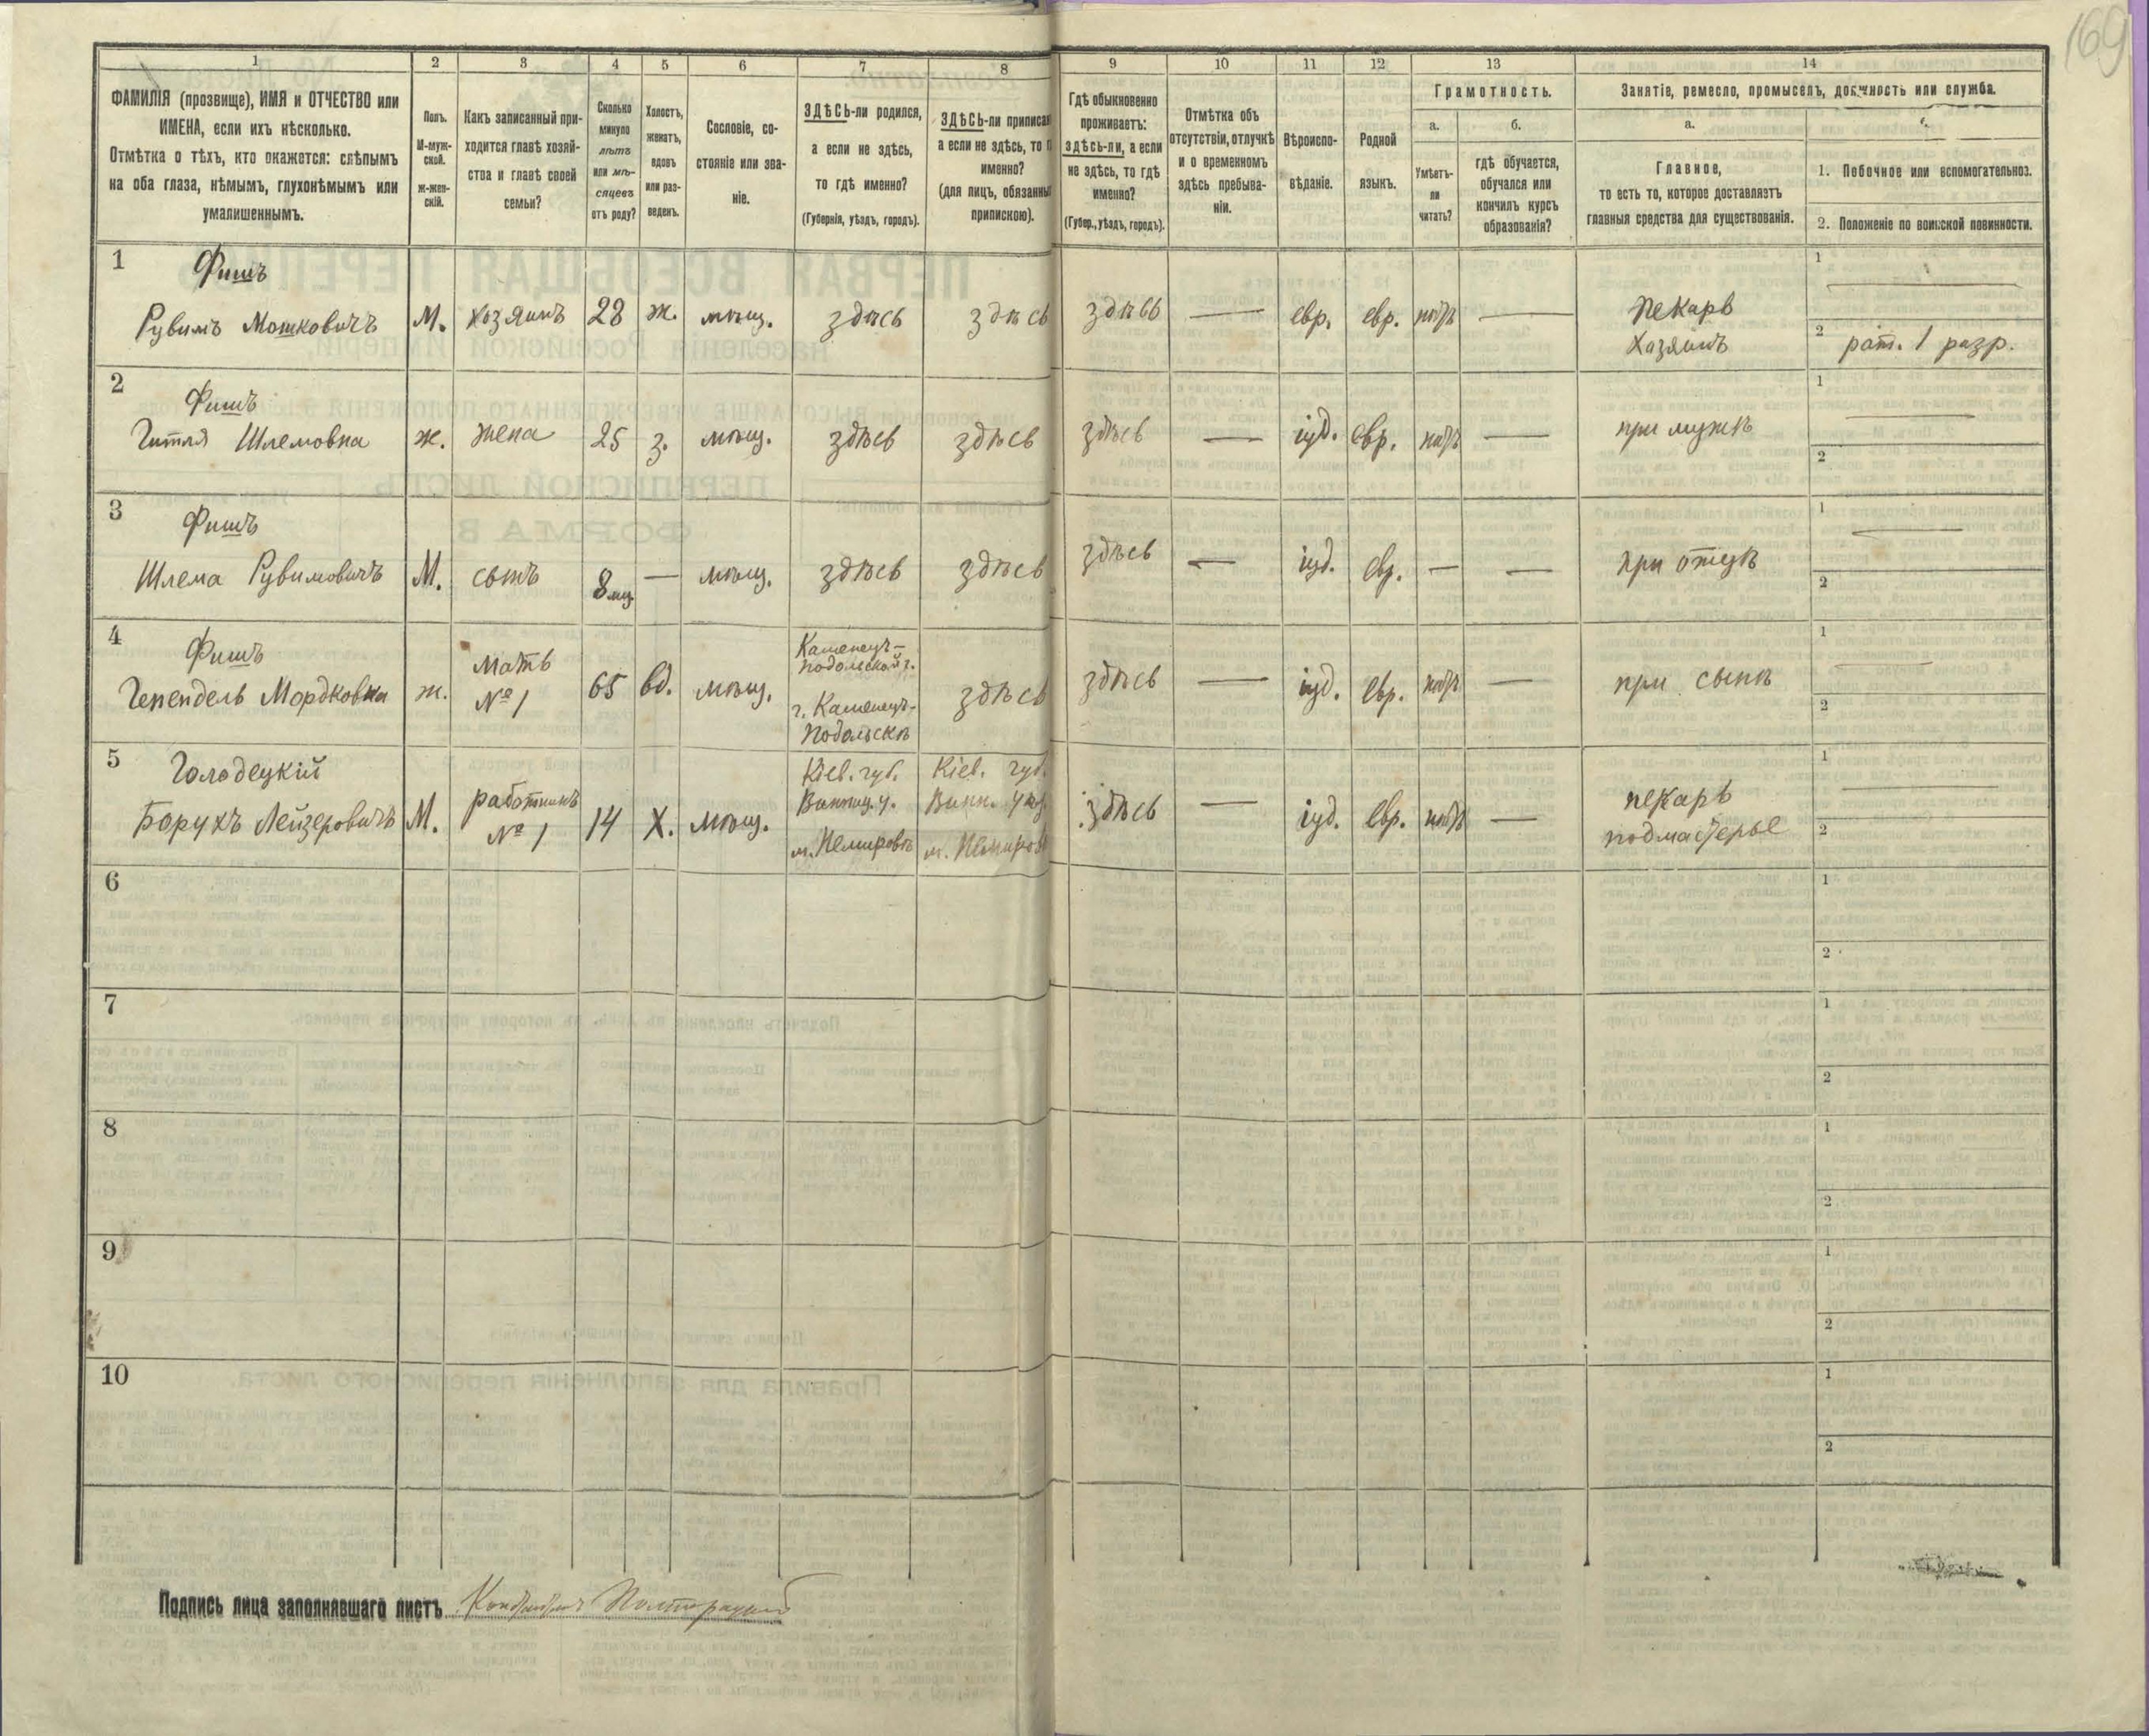 169
1 2 3 4 5 6 7 8 9 10 11 12 13 14
ФАМИЛІЯ (прозвище), ИМЯ и ОТЧЕСТВО или
ИМЕНА, если ихъ нѣсколько.
Отмѣтка о тѣхъ, кто окажется: слѣпымъ
на оба глаза, нѣмымъ, глухонѣмымъ или
умалишеннымъ.
Полъ.
М-муж-
ской.
ж-жен-
скій.
Какъ записанный при-
ходится главѣ хозяй-
ства и главѣ своей
семьи?
Сколько
минуло
лѣтъ
или мѣ-
сяцевъ
отъ роду?
Холостъ,
женатъ,
вдовъ
или раз-
веденъ.
Сословіе, со-
стояніе или зва-
ніе.
ЗДѢСЬ-ли родился,
а если не здѣсь,
то гдѣ именно?
(Губернія, уѣздъ, городъ).
ЗДѢСЬ-ли приписа
а если не здѣсь, то г
именно?
(для лицъ, обязанны
припискою).
Гдѣ обыкновенно
проживаетъ:
здѣсь-ли, а если
не здѣсь, то гдѣ
именно?
(Губер., уѣздъ, городъ).
Отмѣтка объ
отсутствіи, отлучкѣ
и о временномъ
здѣсь пребыва-
ніи.
Вѣроиспо-
вѣданіе.
Родной
языкъ.
Грамотность.
а.
Умѣетъ-
ли
читать?
б.
гдѣ обучается,
обучался или
кончилъ курсъ
образованія?
Занятіе, ремесло, промыселъ, должность или служба.
а.
Главное,
то есть то, которое доставляетъ
главныя средства для существованія.
1. Побочное или вспомогательноз.
2. Положеніе по воинской повинности.
1 Фишъ
Рувимъ Мошковичъ М. хозяинъ 28 ж. мѣщ. здѣсь здѣсь здѣсь — евр. евр. нѣтъ — пекарь
хозяинъ
1 —
2 рат. 1 разр.
2 Фишъ
Гитля Шлемовна ж. жена 25 з. мѣщ. здѣсь здѣсь здѣсь — іуд. евр. нѣтъ — при мужѣ
1 —
2
3 Фишъ
Шлема Рувимовичъ М. сынъ 8 мц — мѣщ. здѣсь здѣсь здѣсь — іуд. евр. — — при отцѣ
1 —
2
4 Фишъ
Генендель Мордковна ж. мать
№ 1
65 вд. мѣщ. Каменецъ-
подольской г.
г. Каменецъ-
Подольскъ
здѣсь здѣсь — іуд. евр. нѣтъ — при сынѣ
1 —
2
5 Голодецкій
Борухъ Лейзеровичъ М. работникъ
№ 1
14 Х. мѣщ. Кіев. губ.
Винниц. у.
м. Немировъ
Кіев. губ.
Винн. уѣз.
м. Немировъ
здѣсь — іуд. евр. нѣтъ — пекарь
подмастерье
1 —
2
6 1
2
7 1
2
8 1
2
9 1
2
10 1
2
Подпись лица заполнявшаго листъ